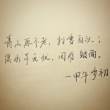 青山原不老，为雪白头；
绿水本无忧，因风皱面。